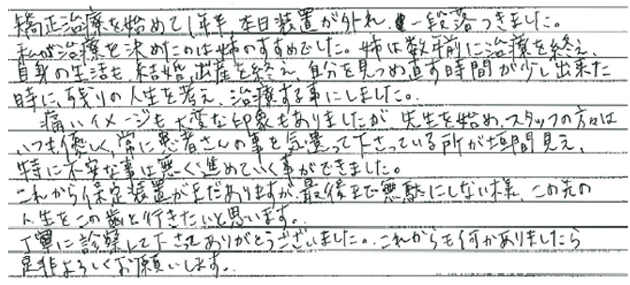 矯正治療を始めて1年半 本日装置が外れ、一段落つきました。
私が治療を決めたのは姉のすすめでした。姉は数年前に治療を終え、
自身の生活も 結婚、出産を終え、自分を見つめ直す時間が少し出来た
時に、残りの人生を考え、治療する事にしました。
痛いイメージも大変な印象もありましたが、先生を始め、スタッフの方々は
いつも優しく、常に患者さんの事を気遣って下さっている所が垣間見え、
特に不安な事は無く進めていく事ができました。
これから保定装置がまだありますが、最後まで無駄にしない様、この先の
人生をこの歯と行きたいと思います。
丁寧に診察して下さってありがとうございました。これからも何かありましたら
是非よろしくお願いします。